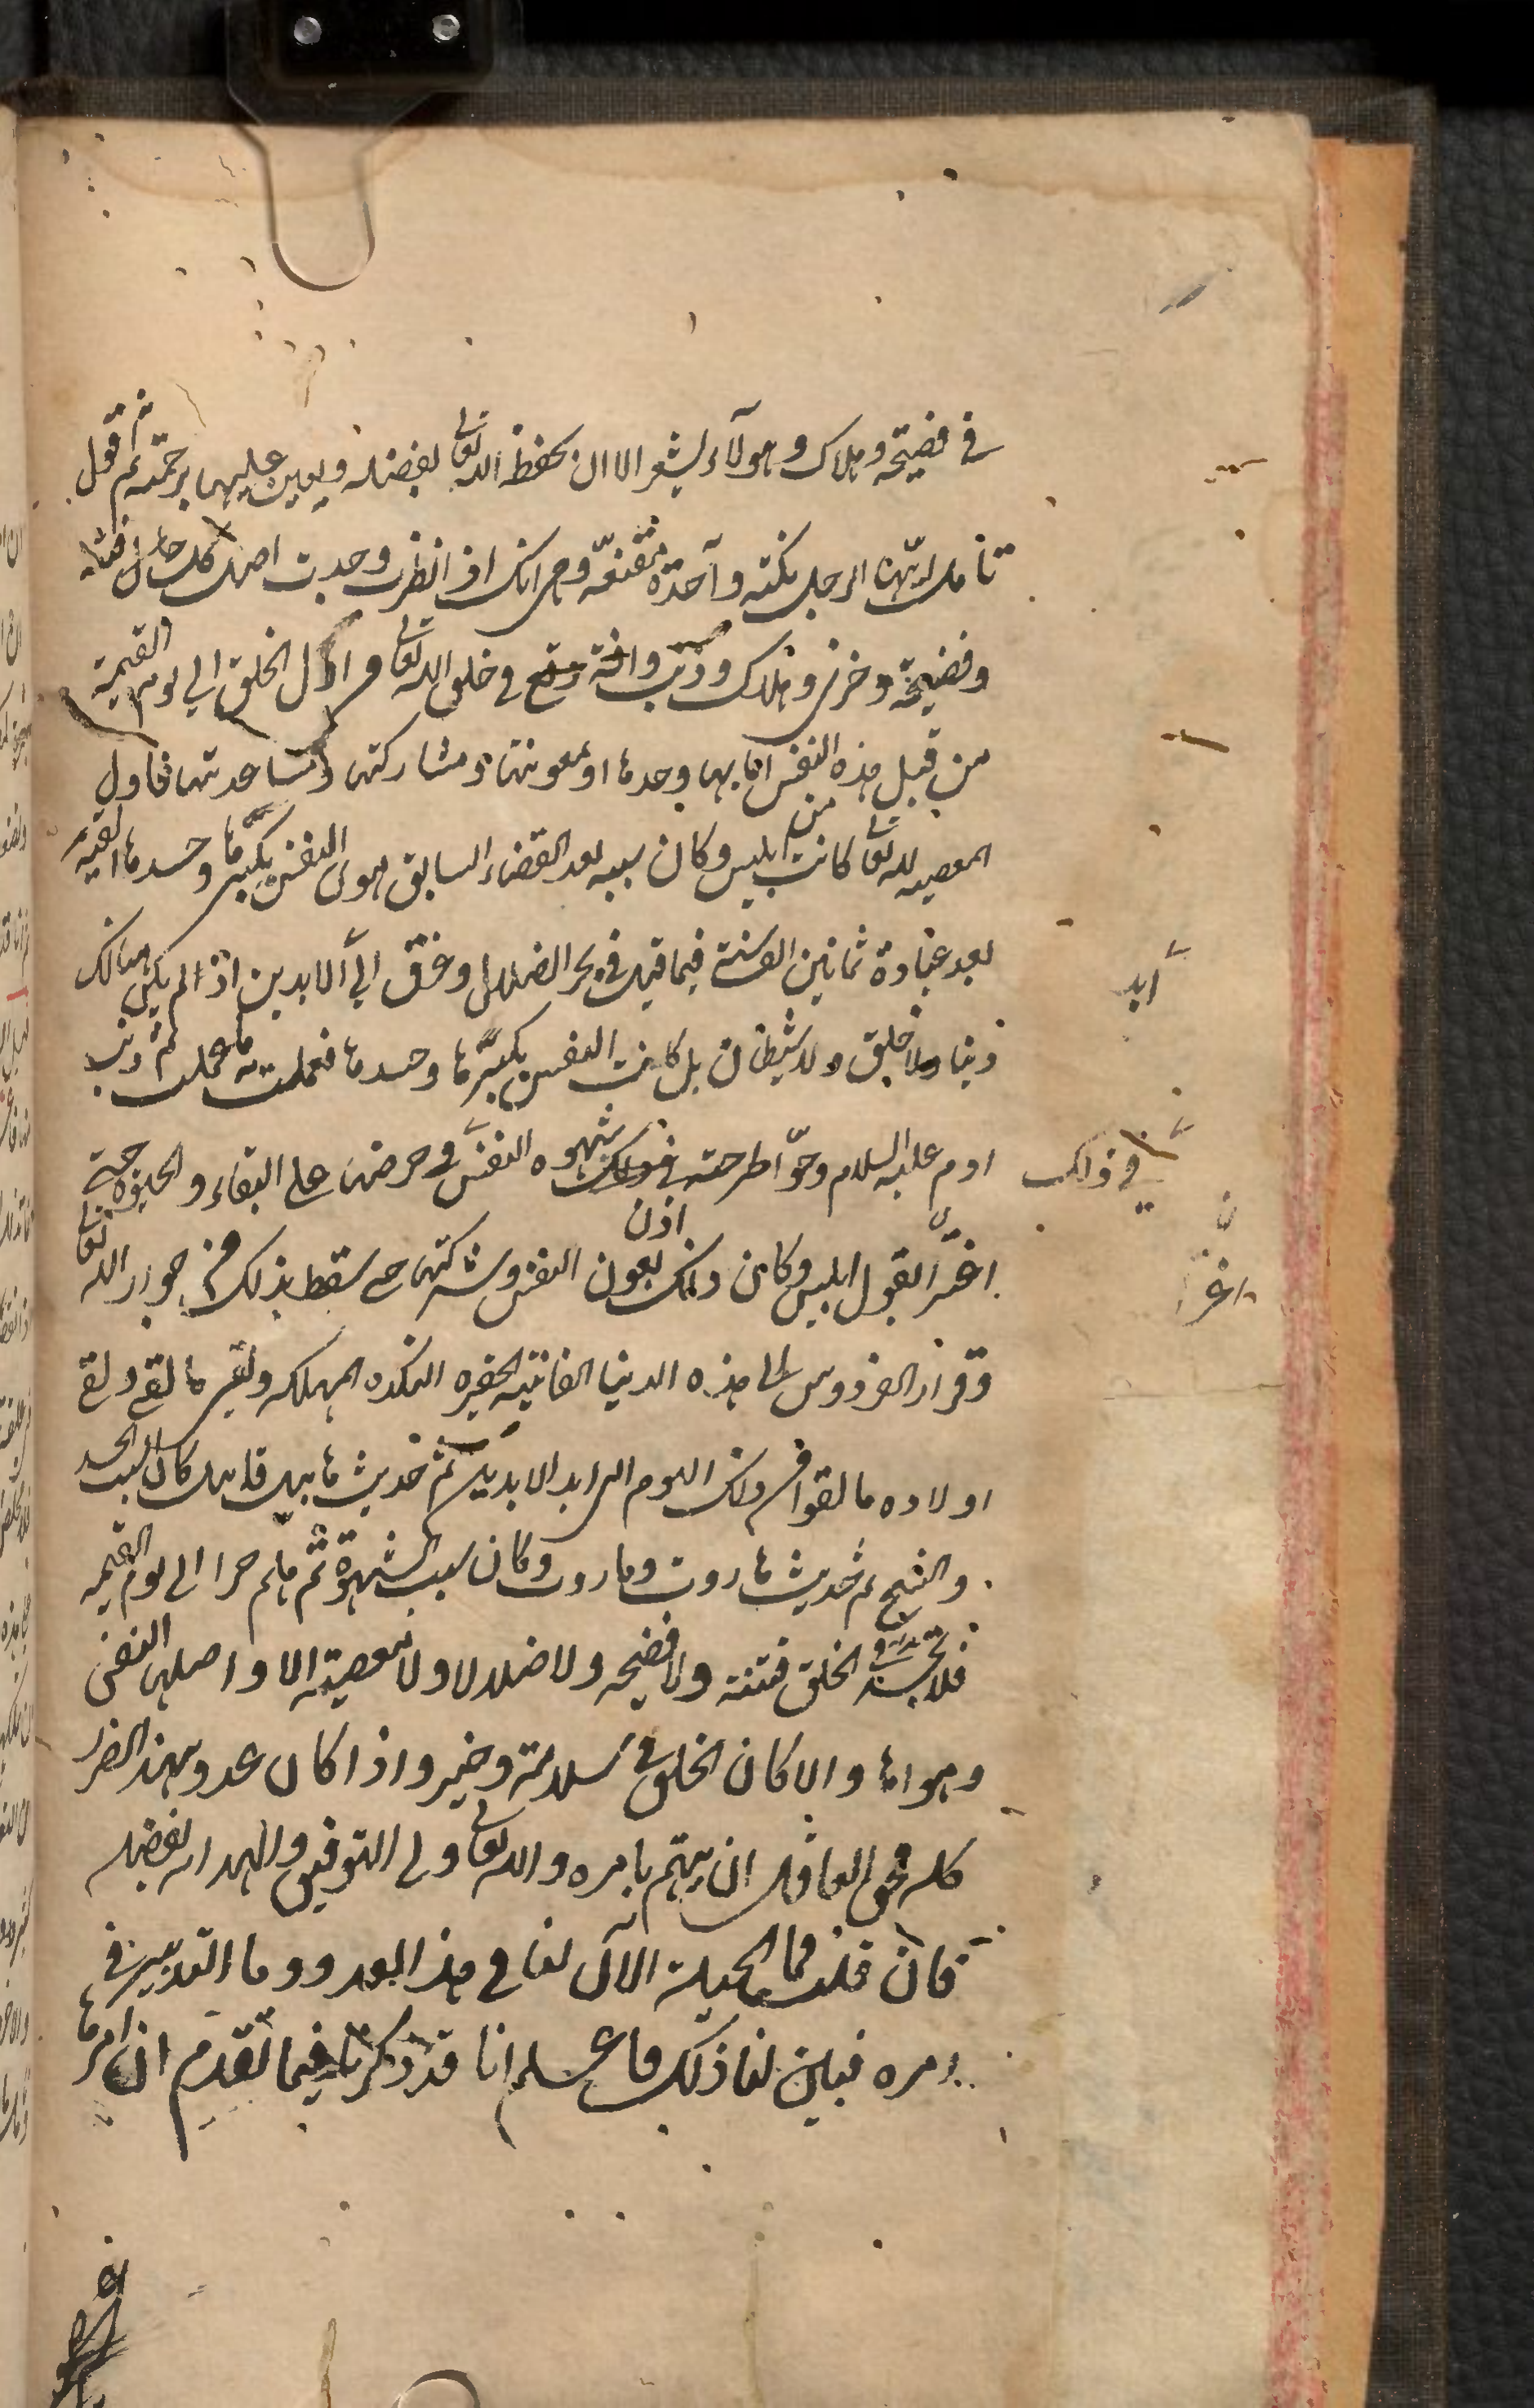 في فضيحه وهلاك وهو لا يشعر الا ان يحفظ الله تعالى بفضله ويعين عليها برحمته ثم قول
تامل ايها الرجل نكتة واحدة مقنعة وهي انك اذا نظرت وجدت اصل كل فتنة
وفضيحة وخزي وهلاك وذنب وافة وقع في خلق الله تعالى من اول الخلق الي يوم القيمة
من قبل هذه النفس اما بها وحدها او بمعونتها ومشاركتها ومساعدتها فاول
المعصيه لله تعالى كانت من ابليس وكان سببه بعد القضاء السابق هوى النفس بكبرها وحسدها القته
بعد عبادة ثمانين الف سنة فيما قيل في بحر الضلال وغرق الي ابد الابدين اذ لم يكن هنالك
دنيا ولا خلق ولا شيطان بل كانت النفس بكبرها وحسدها فعملت به ما عملت ثم ذنب
ادم عليه السلام وحوا طرحته في ذلك شهوه النفس وحرصها على البقاء والحيوة حتى
اغترا بقول ابليس وكان ذلك اذن بعون النفس وشركتها حتى سقط بذلك من جوار الله تعالى
وقرار الفردوس الى هذه الدنيا الفانيه الحقيره النكده المهلكه ولقى ما لقى ولقى
اولاده ما لقوا من ذلك اليوم الى ابد الابدين ثم حديث هابيل قابيل كان سبب الحسد
والشح ثم حديث هاروت وماروت وكان سبب الشهوة ثم هلم جرا الى يوم القيمه
فلا تجد في الخلق فتنة ولا فضيحه ولا ضلالا ولا معصية الا واصلها النفس
وهواها والا كان الخلق في سلامة وخير واذا كان عدو بهذا الضرر
كله فحق العاقل ان يهتم بامره والله تعالى ولى التوفيق والهدايه بفضله
فان قلت فما الحيلة الان لنا في هذا العدو وما التدبير في
امره فبين لنا ذلك فاعلم انا قد ذكرنا فيما تقدم ان امرها
ابد
في ذلك
اغترا